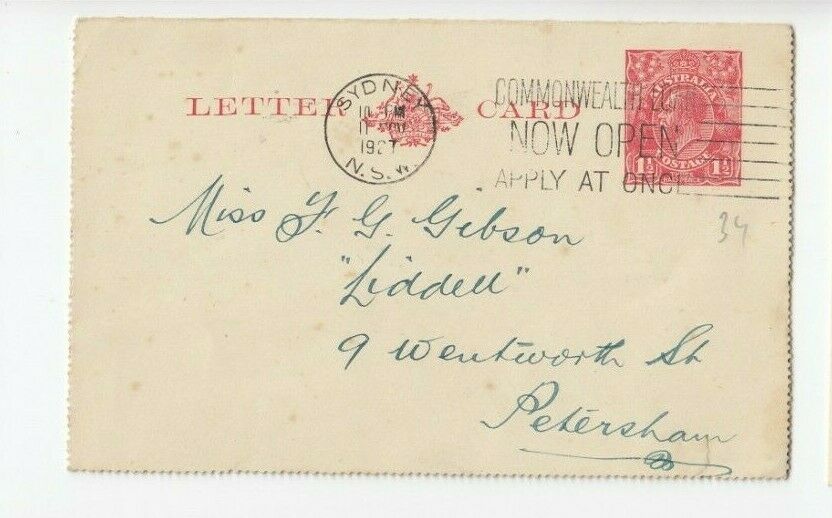 LETTER CARD
SYDNEY
1927
N.S.W.
COMMONWEALTH
NOW OPEN
APPLY AT ONCE
AUSTRALIA
1½ POSTAGE 1½
34
Miss F. G. Gibson
"Liddell"
9 Wentworth St
Petersham